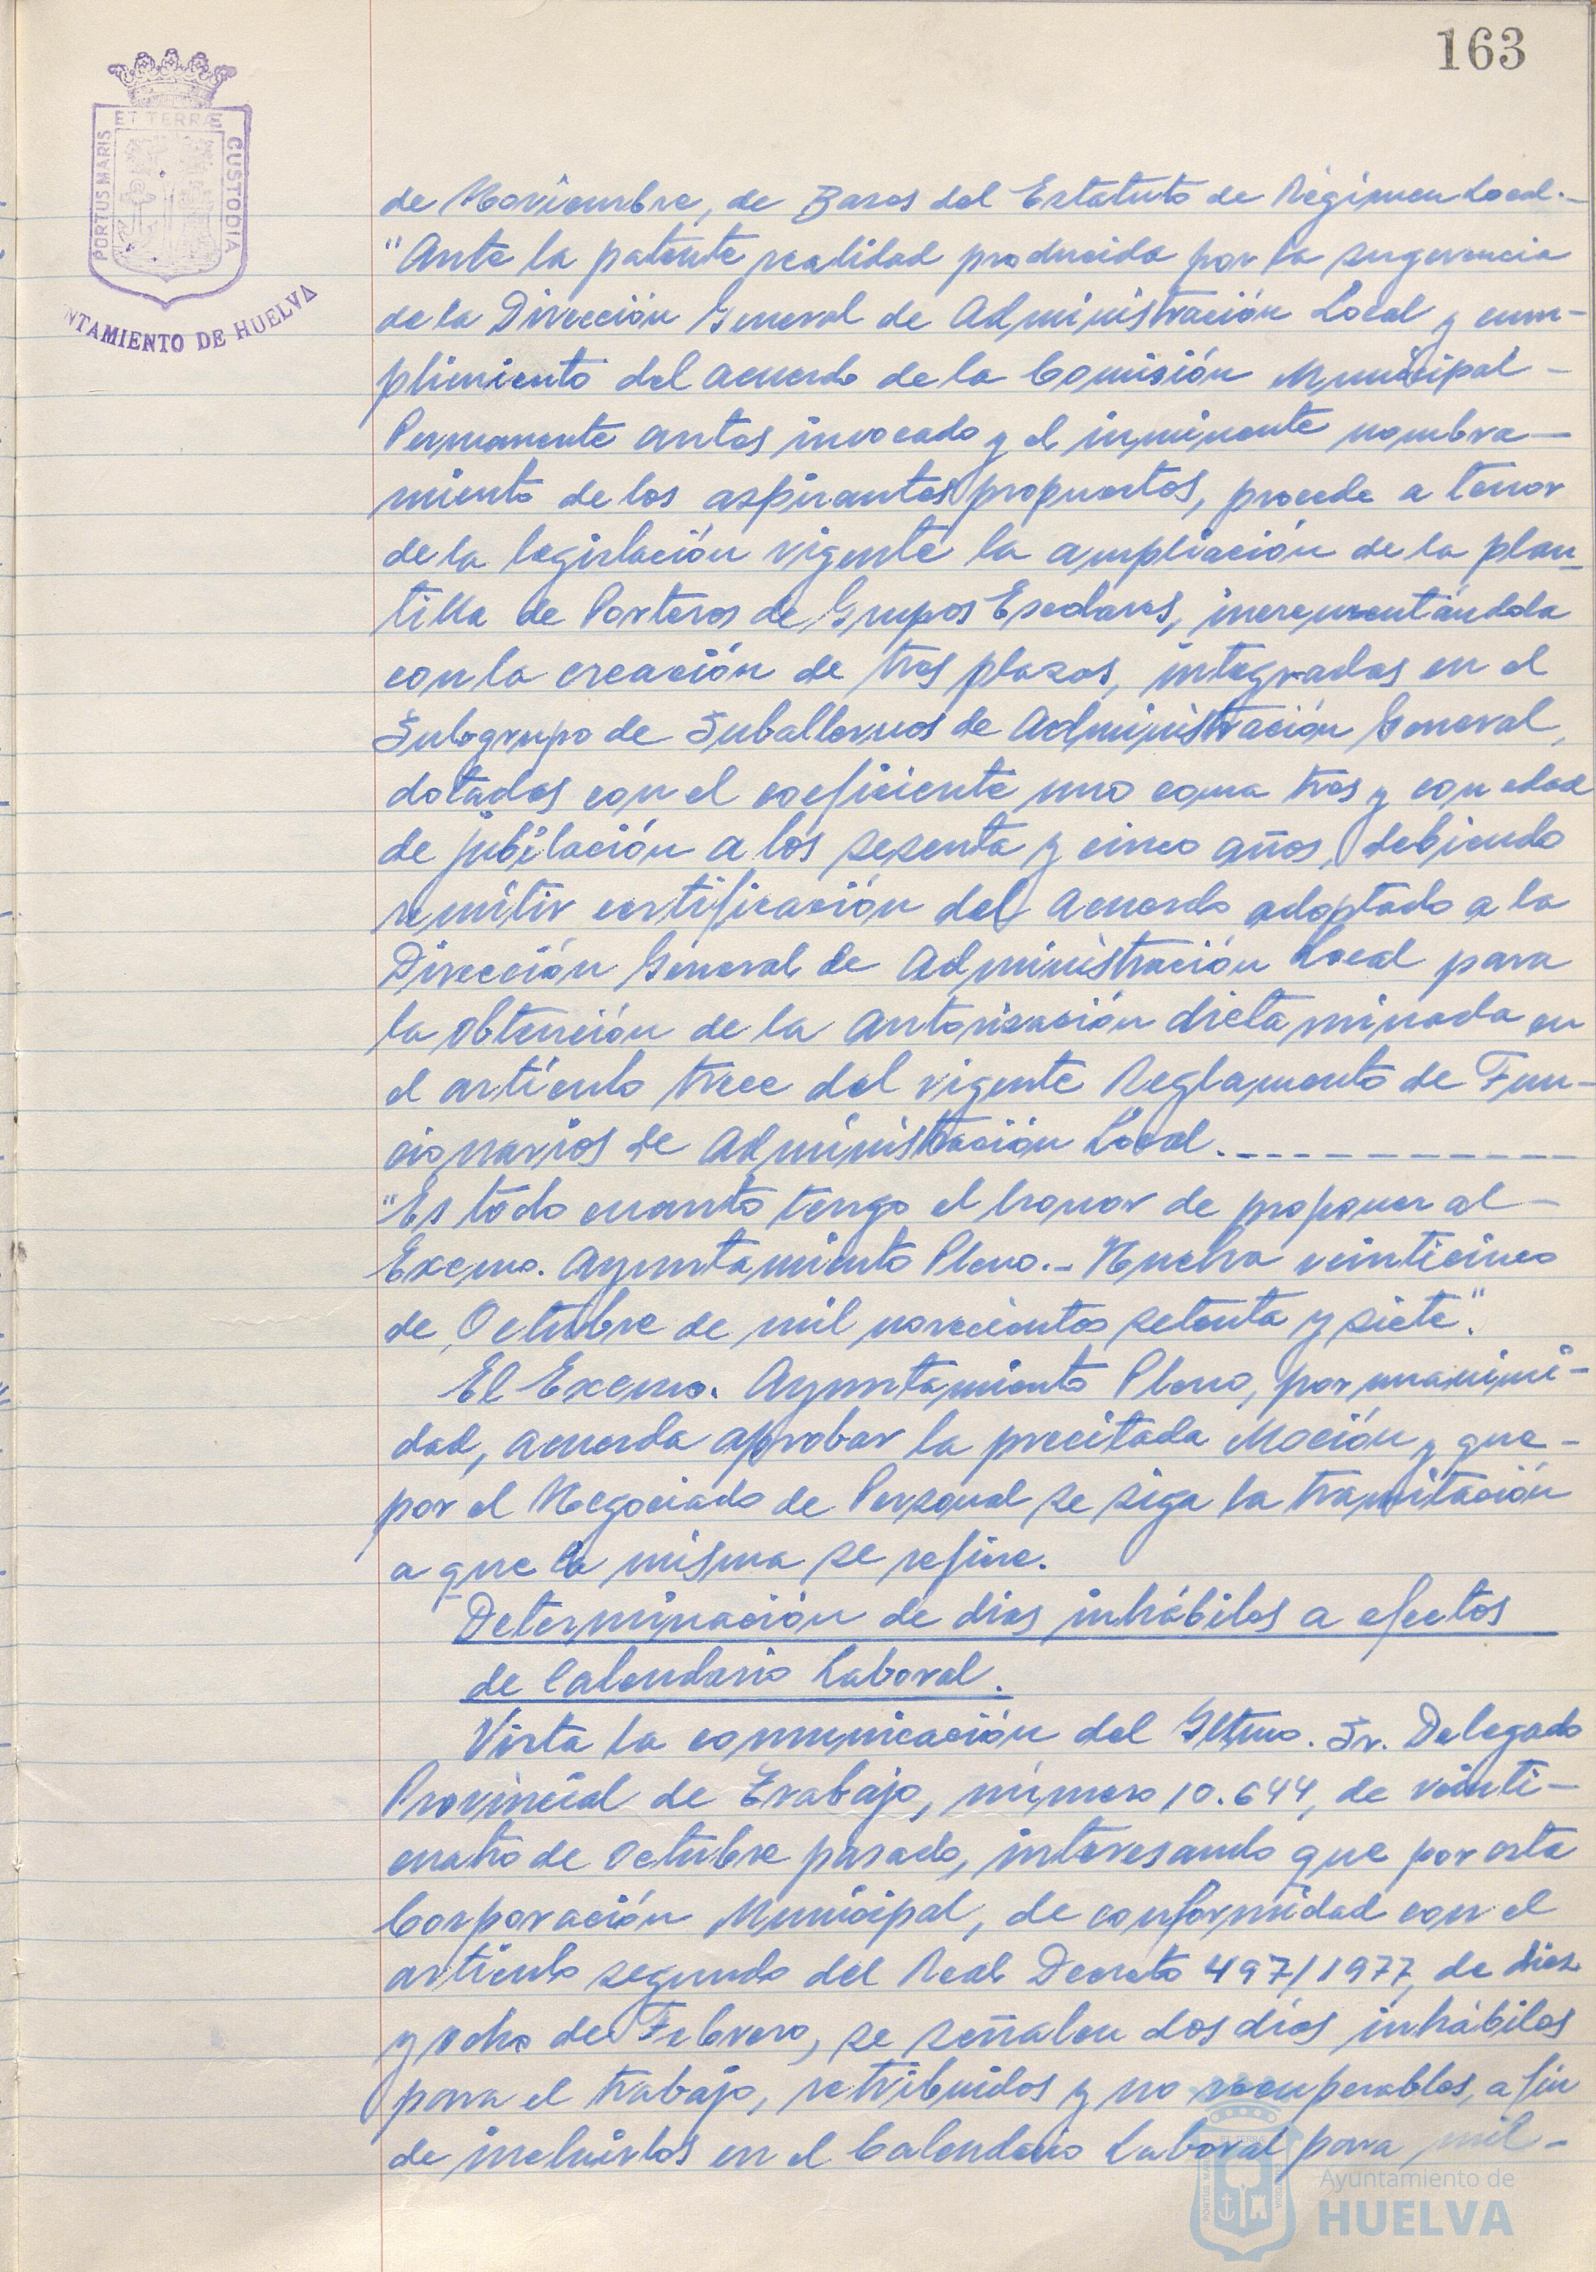 163
ET TERRAE
PORTUS MARIS
CUSTODIA
NTAMIENTO DE HUELVA
de Noviembre, de Bases del Estatuto de Régimen Local.-
"Ante la patente realidad producida por la sugerencia
de la Dirección General de Administración Local y cum-
plimiento del acuerdo de la Comisión Municipal -
Permanente antes invocado y el inminente nombra-
miento de los aspirantes propuestos, procede a tenor
de la legislación vigente la ampliación de la plan-
tilla de Porteros de Grupos Escolares, incrementándola
con la creación de tres plazas, integradas en el
Subgrupo de Subalternos de Administración General,
dotadas con el coeficiente uno coma tres y con edad
de jubilación a los sesenta y cinco años, debiendo
remitir certificación del acuerdo adoptado a la
Dirección General de Administración Local para
la obtención de la autorización dictaminada en
el artículo trece del vigente Reglamento de Fun-
cionarios de Administración Local.------------
"Es todo cuanto tengo el honor de proponer al -
Excmo. Ayuntamiento Pleno.- Huelva veinticinco
de Octubre de mil novecientos setenta y siete".
El Excmo. Ayuntamiento Pleno, por unanimi-
dad, acuerda aprobar la precitada Moción y que -
por el Negociado de Personal se siga la tramitación
a que la misma se refiere.
Determinación de días inhábiles a efectos
de Calendario Laboral.
Vista la comunicación del Iltmo. Sr. Delegado
Provincial de Trabajo, número 10.644, de veinti-
cuatro de Octubre pasado, interesando que por esta
Corporación Municipal, de conformidad con el
artículo segundo del Real Decreto 497/1977, de diez
y ocho de Febrero, se señalen dos días inhábiles
para el trabajo, retribuidos y no recuperables, a fin
de incluirlos en el Calendario Laboral para mil -
Ayuntamiento de
HUELVA